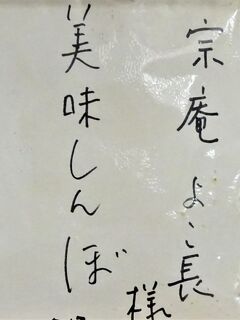 宗庵よこ長
様
美味しんぼ